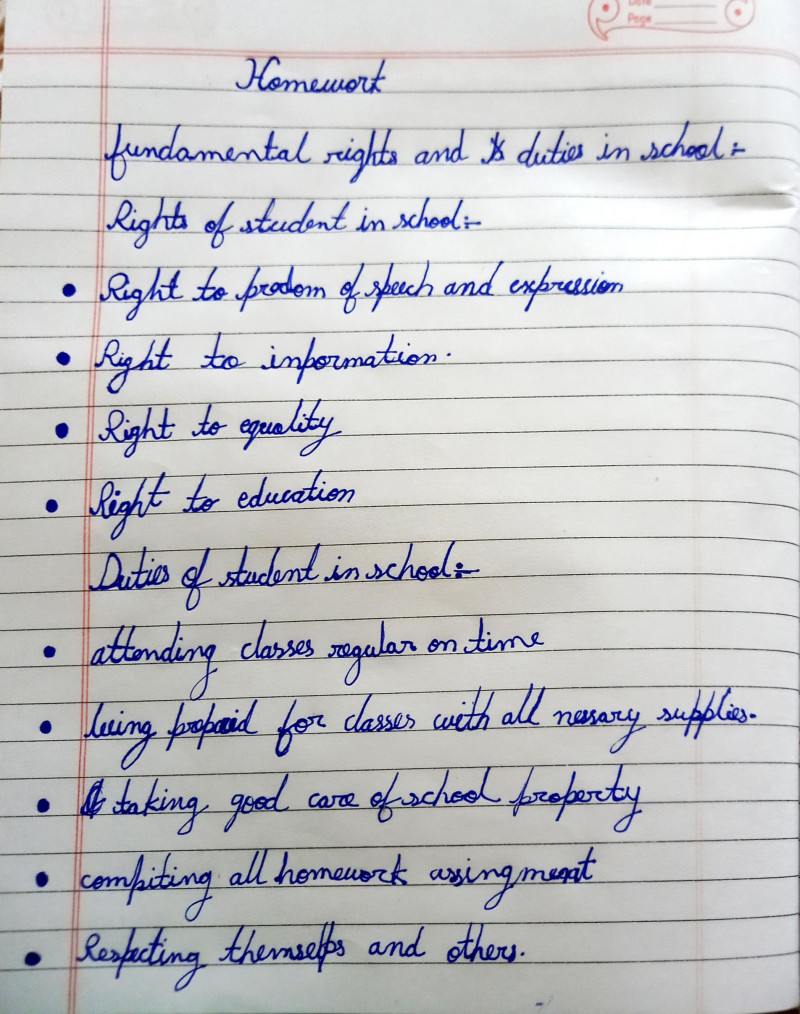 Date
Page
Homework
fundamental rights and duties in school:-
Rights of student in school:-
• Right to predom of speech and expression
• Right to information.
• Right to equality
• Right to education
Duties of student in school:-
• attending classes regular on time
• being prepaid for classes with all nessary supplies.
• taking good care of school property
• compiting all homework assingment
• Respecting themselfs and others.